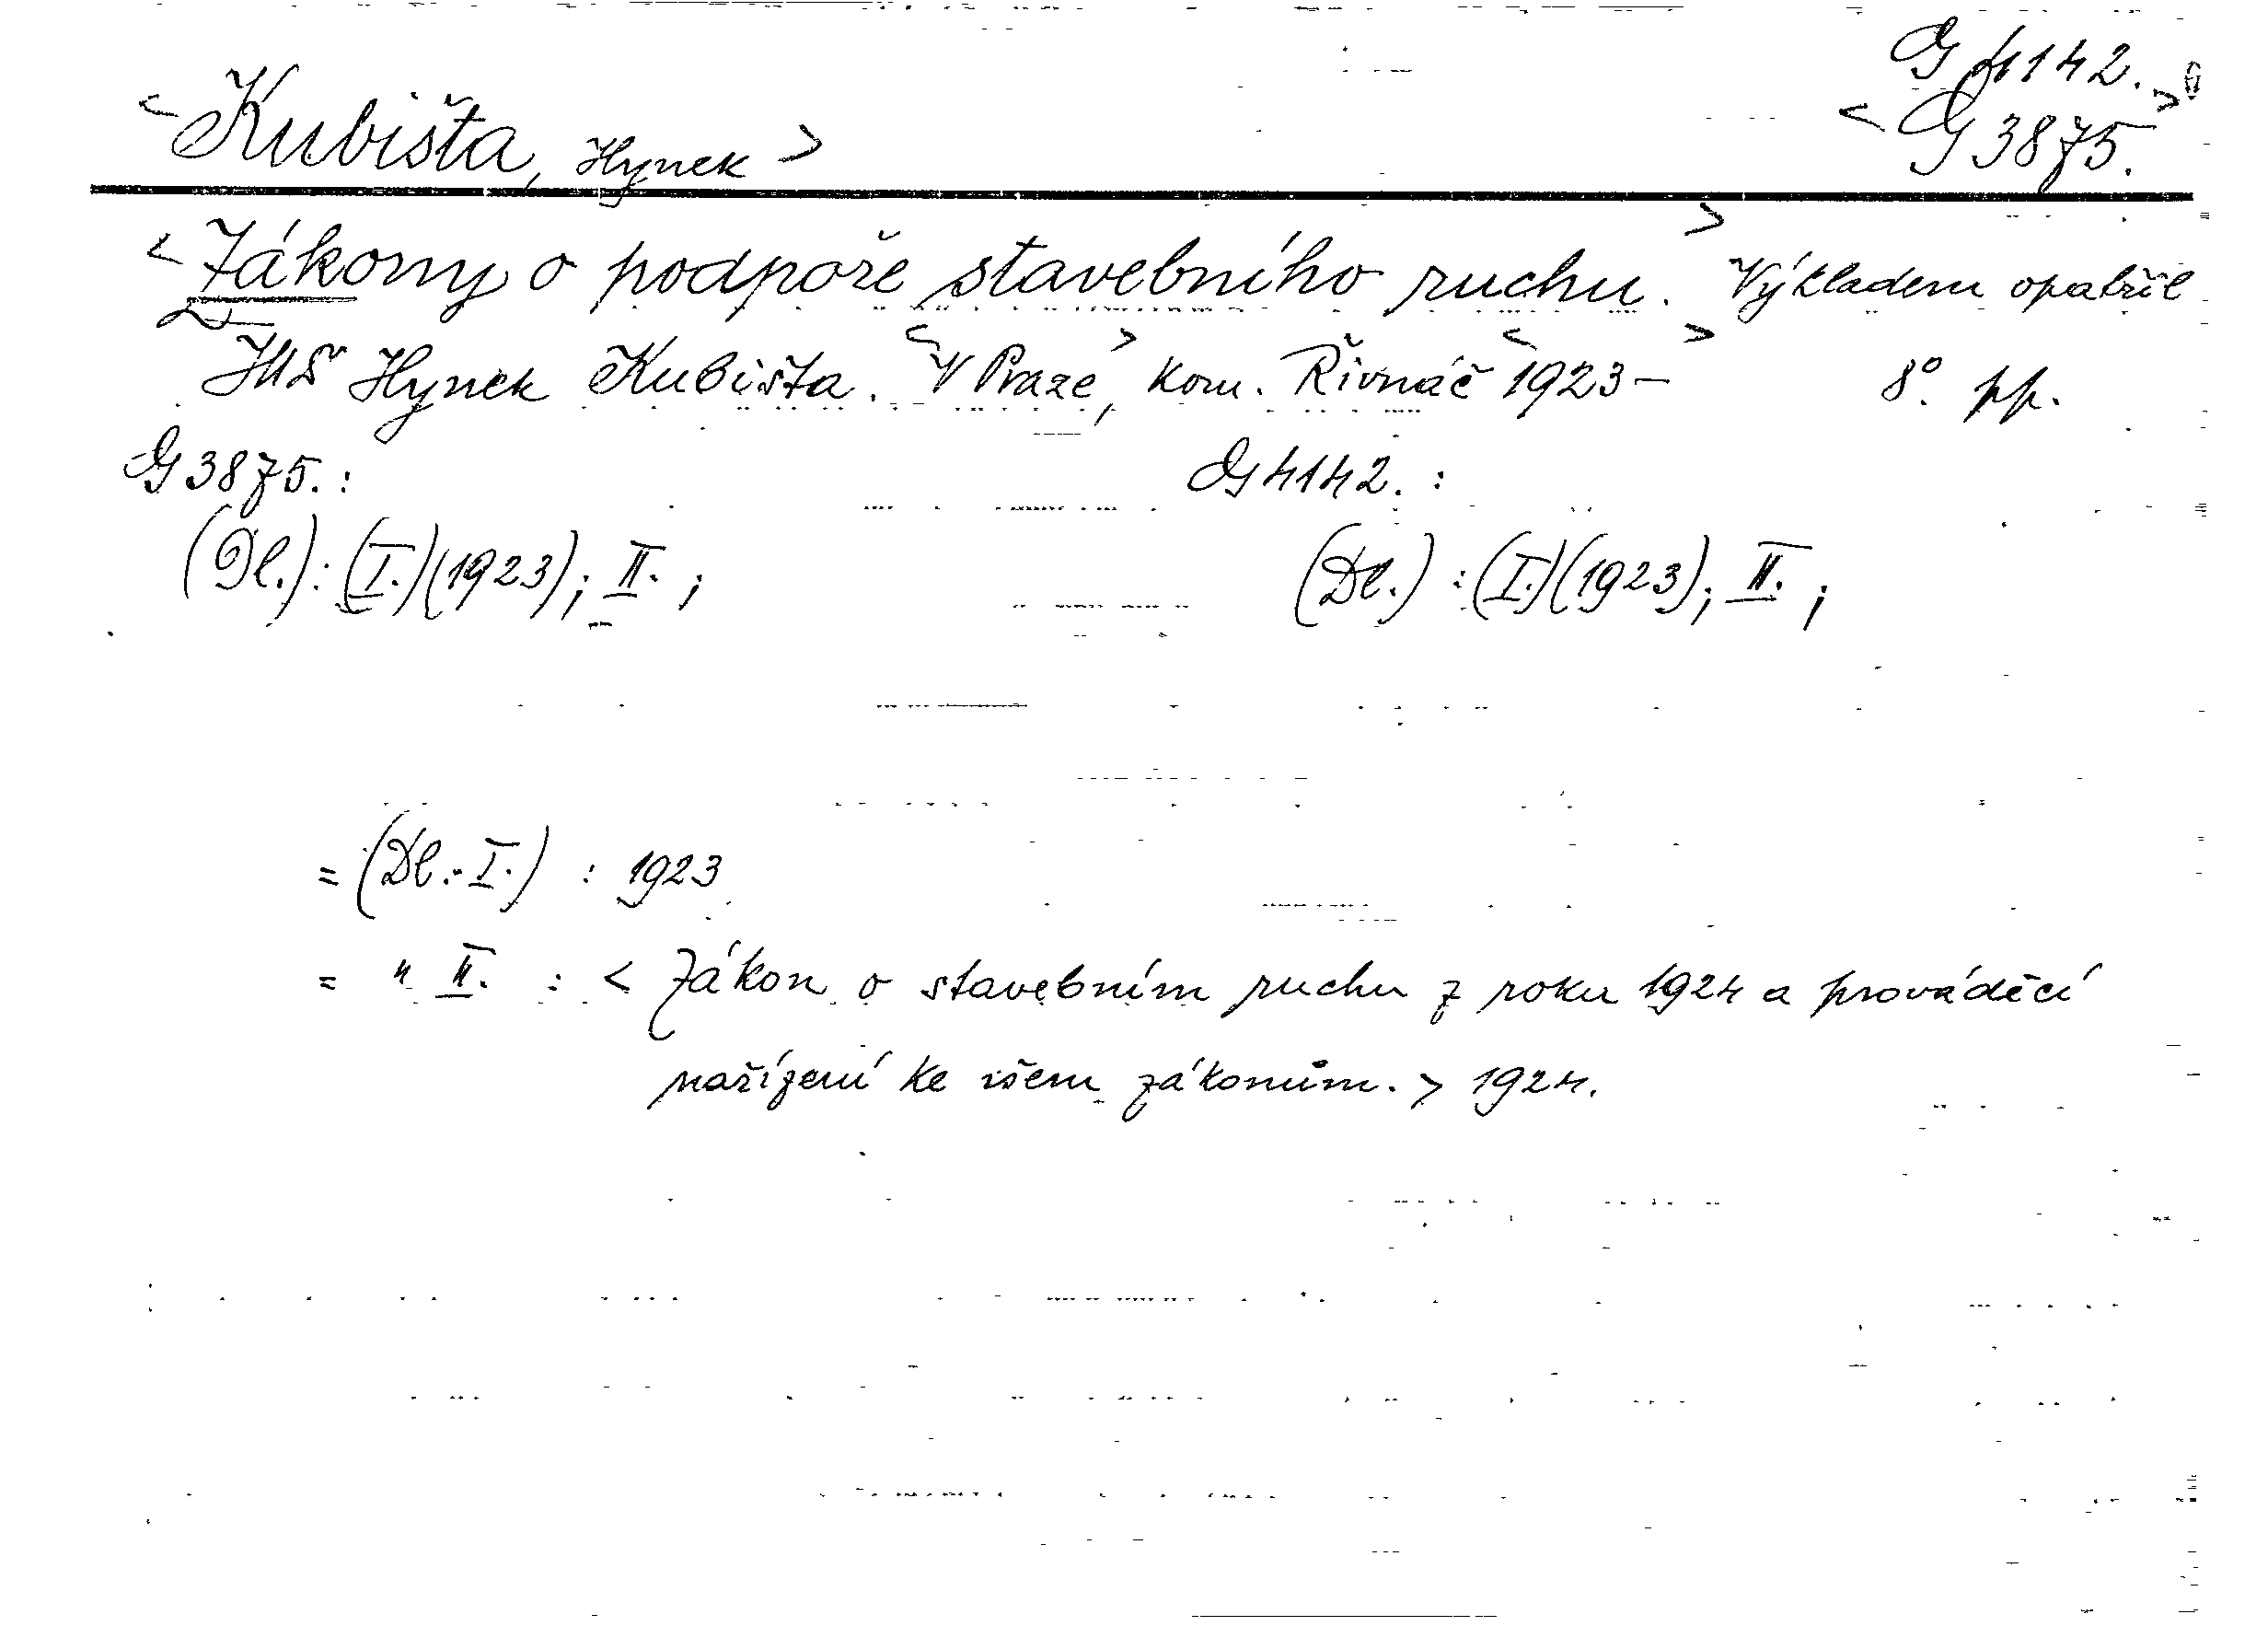 G 4142.
< Kubišta, Hynek > < G 3875. >
< Zákony o podpoře stavebního ruchu. > Výkladem opatřil
Hynek Kubišta. < V Praze >, kom. Řivnáč < 1923 – > 8°. pp.
G 3875. : G 4142. :
(Dl.) : (I.) (1923) ; II. ; (Dl.) : (I.) (1923) ; II. ;
= (Dl. I.) : 1923
= " II. : < Zákon o stavebním ruchu z roku 1924 a prováděcí
nařízení ke všem zákonům. > 1924.